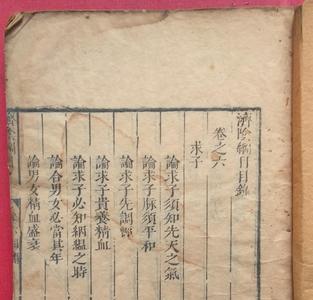 濟陰綱目目錄
卷之六
求子
論求子須知先天之氣
論求子脉須平和
論求子先調經
論求子貴養精血
論求子必知絪縕之時
論合男女必當其年
論男女精血盛衰